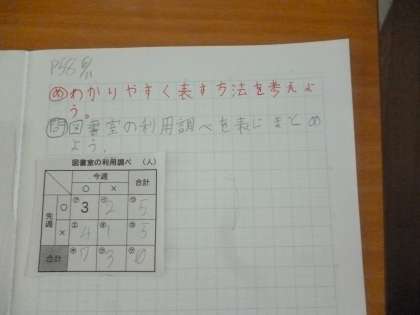 P56
めわかりやすく表す方法を考えよ
う。
問図書室の利用調べを表にまとめ
よう。
図書室の利用調べ (人)
今週
○ × 合計
先週 ○ 3 2 5
× 4 1 5
合計 7 3 10